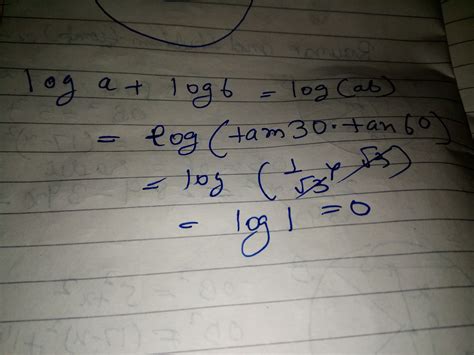 log a + log b = log (ab)
= log (tan 30 · tan 60)
= log (1/√3 × √3)
= log 1 = 0